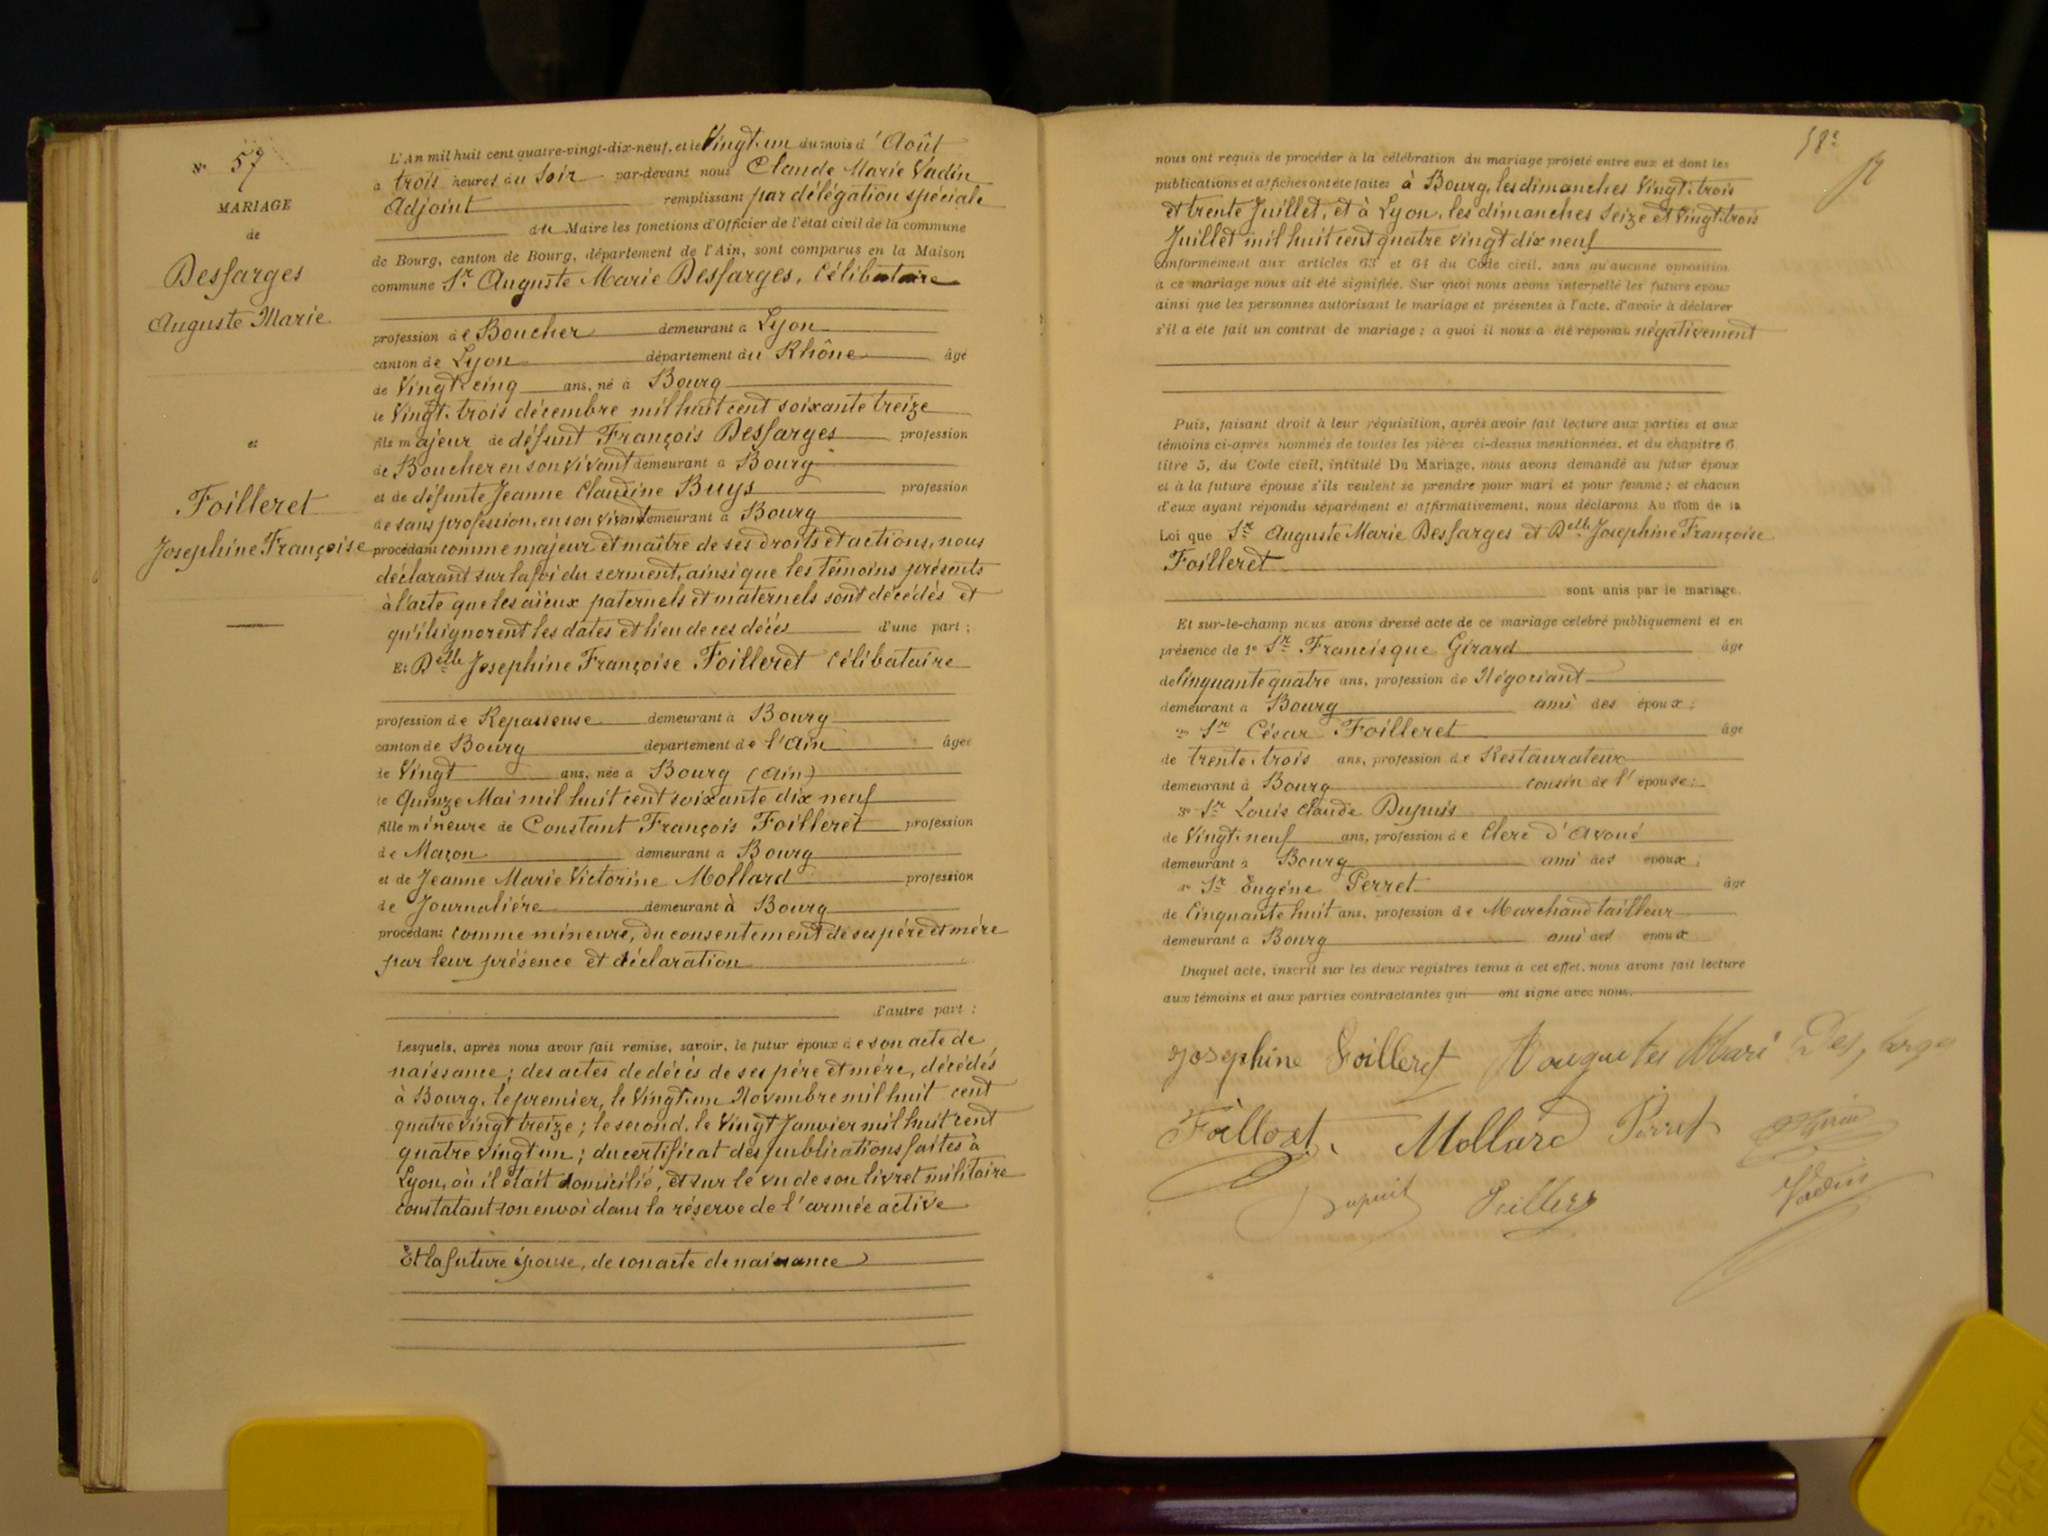 N° 57
MARIAGE
de
Desfarges
Auguste Marie
et
Foilleret
Josephine Françoise
L'An mil huit cent quatre-vingt-dix-neuf, et le Vingt-un du mois d'Août
à trois heures du Soir par-devant nous Claude Marie Vadin
Adjoint remplissant par délégation spéciale
du Maire les fonctions d'Officier de l'état civil de la commune
de Bourg, canton de Bourg, département de l'Ain, sont comparus en la Maison
commune Sr. Auguste Marie Desfarges, Célibataire
profession de Boucher demeurant à Lyon
canton de Lyon département du Rhône âgé
de Vingt-cinq ans, né à Bourg
le Vingt-trois décembre mil huit cent soixante treize
fils majeur de défunt François Desfarges profession
de Boucher en son vivant demeurant à Bourg
et de défunte Jeanne Claudine Buys profession
de sans profession, en son vivant demeurant à Bourg
procédant comme majeur et maître de ses droits et actions, nous
déclarant sur la foi du serment, ainsi que les témoins présents
à l'acte que les aïeux paternels et maternels sont décédés et
qu'ils ignorent les dates et lieu de ces décès d'une part ;
Et Delle Josephine Françoise Foilleret Célibataire
profession de Repasseuse demeurant à Bourg
canton de Bourg département de l'Ain âgée
de Vingt ans, née à Bourg (Ain)
le Quinze Mai mil huit cent soixante dix neuf
fille mineure de Constant François Foilleret profession
de Maçon demeurant à Bourg
et de Jeanne Marie Victorine Mollard profession
de Journalière demeurant à Bourg
procédant comme mineure, du consentement de ses père et mère
par leur présence et déclaration
d'autre part :
Lesquels, après nous avoir fait remise, savoir, le futur époux de son acte de
naissance ; des actes de décès de ses père et mère, décédés
à Bourg, le premier, le Vingt-un Novembre mil huit cent
quatre vingt treize ; le second, le Vingt Janvier mil huit cent
quatre vingt un ; du certificat des publications faites à
Lyon, où il était domicilié, et sur le vu de son livret militaire
constatant son envoi dans la réserve de l'armée active
Et la future épouse, de son acte de naissance
58e
nous ont requis de procéder à la célébration du mariage projeté entre eux et dont les
publications et affiches ont été faites à Bourg, les dimanches Vingt-trois
et trente Juillet, et à Lyon, les dimanches Seize et Vingt-trois
Juillet mil huit cent quatre vingt dix neuf
conformément aux articles 63 et 64 du Code civil, sans qu'aucune opposition
à ce mariage nous ait été signifiée. Sur quoi nous avons interpellé les futurs époux
ainsi que les personnes autorisant le mariage et présentes à l'acte, d'avoir à déclarer
s'il a été fait un contrat de mariage ; à quoi il nous a été répondu négativement
Puis, faisant droit à leur réquisition, après avoir fait lecture aux parties et aux
témoins ci-après nommés de toutes les pièces ci-dessus mentionnées, et du chapitre 6,
titre 5, du Code civil, intitulé Du Mariage, nous avons demandé au futur époux
et à la future épouse s'ils veulent se prendre pour mari et pour femme ; et chacun
d'eux ayant répondu séparément et affirmativement, nous déclarons Au nom de la
Loi que Sr. Auguste Marie Desfarges et Delle Josephine Françoise
Foilleret
sont unis par le mariage.
Et sur-le-champ nous avons dressé acte de ce mariage célébré publiquement et en
présence de 1° Sr. Francisque Girard âgé
de Cinquante quatre ans, profession de Négociant
demeurant à Bourg ami des époux ;
2° Sr César Foilleret âgé
de trente-trois ans, profession de Restaurateur
demeurant à Bourg cousin de l'épouse ;
3° Sr Louis Claude Dupuis
de Vingt-neuf ans, profession de Clerc d'avoué
demeurant à Bourg ami des époux ;
4° Sr Eugène Perret âgé
de Cinquante huit ans, profession de Marchand tailleur
demeurant à Bourg ami des époux
Duquel acte, inscrit sur les deux registres tenus à cet effet, nous avons fait lecture
aux témoins et aux parties contractantes qui ont signé avec nous.
Josephine Foilleret
Mollard Perret
Vadin